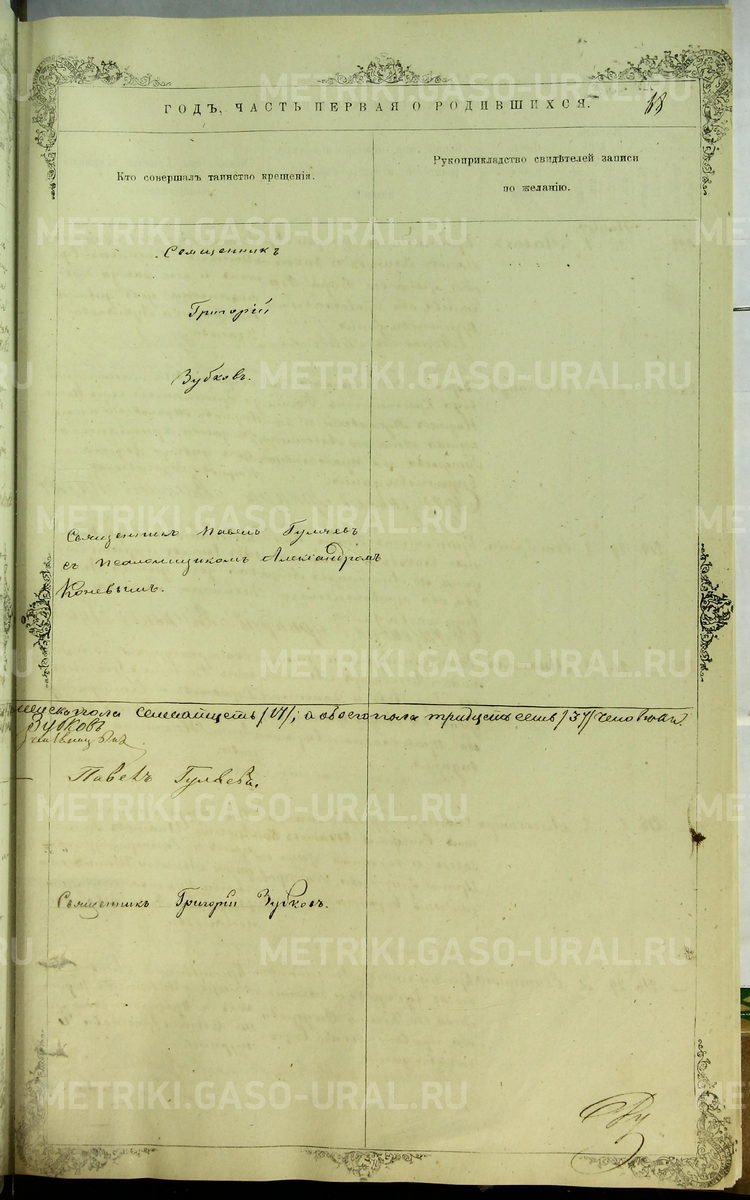 ГОДЪ, ЧАСТЬ ПЕРВАЯ О РОДИВШИХСЯ.
Кто совершалъ таинство крещенія.
Рукоприкладство свидѣтелей записи
по желанію.
Священникъ
Григорій
Зубковъ.
Священникъ Павелъ Гуляевъ
съ псаломщикомъ Александромъ
Коневымъ.
женскаго пола семнадцать /17/, а обоего пола тридцать семь /37/ человѣкъ.
Зубковъ
Павелъ Гуляевъ.
Священникъ Григорій Зубковъ.
METRIKI.GASO-URAL.RU